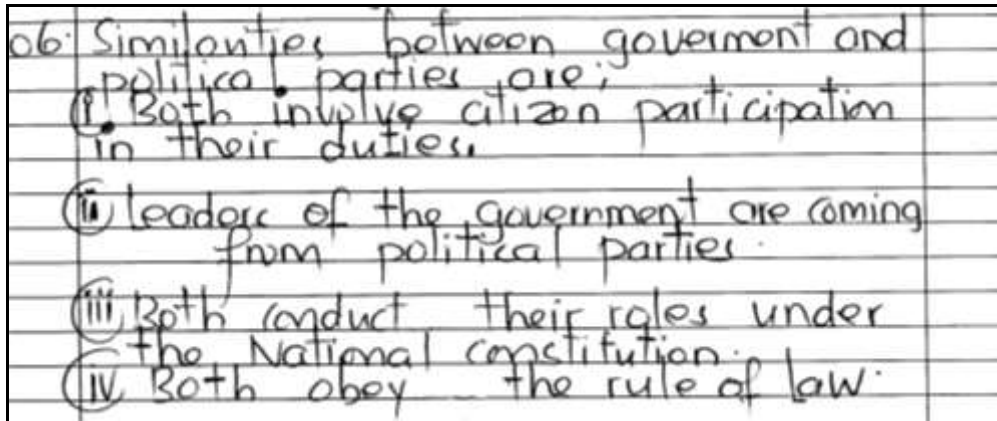 06. Similarities between goverment and
political parties are;
(i) Both involve citizen participation
in their duties.
(ii) Leaders of the government are coming
from political parties.
(iii) Both conduct their roles under
the National constitution.
(iv) Both obey the rule of law.